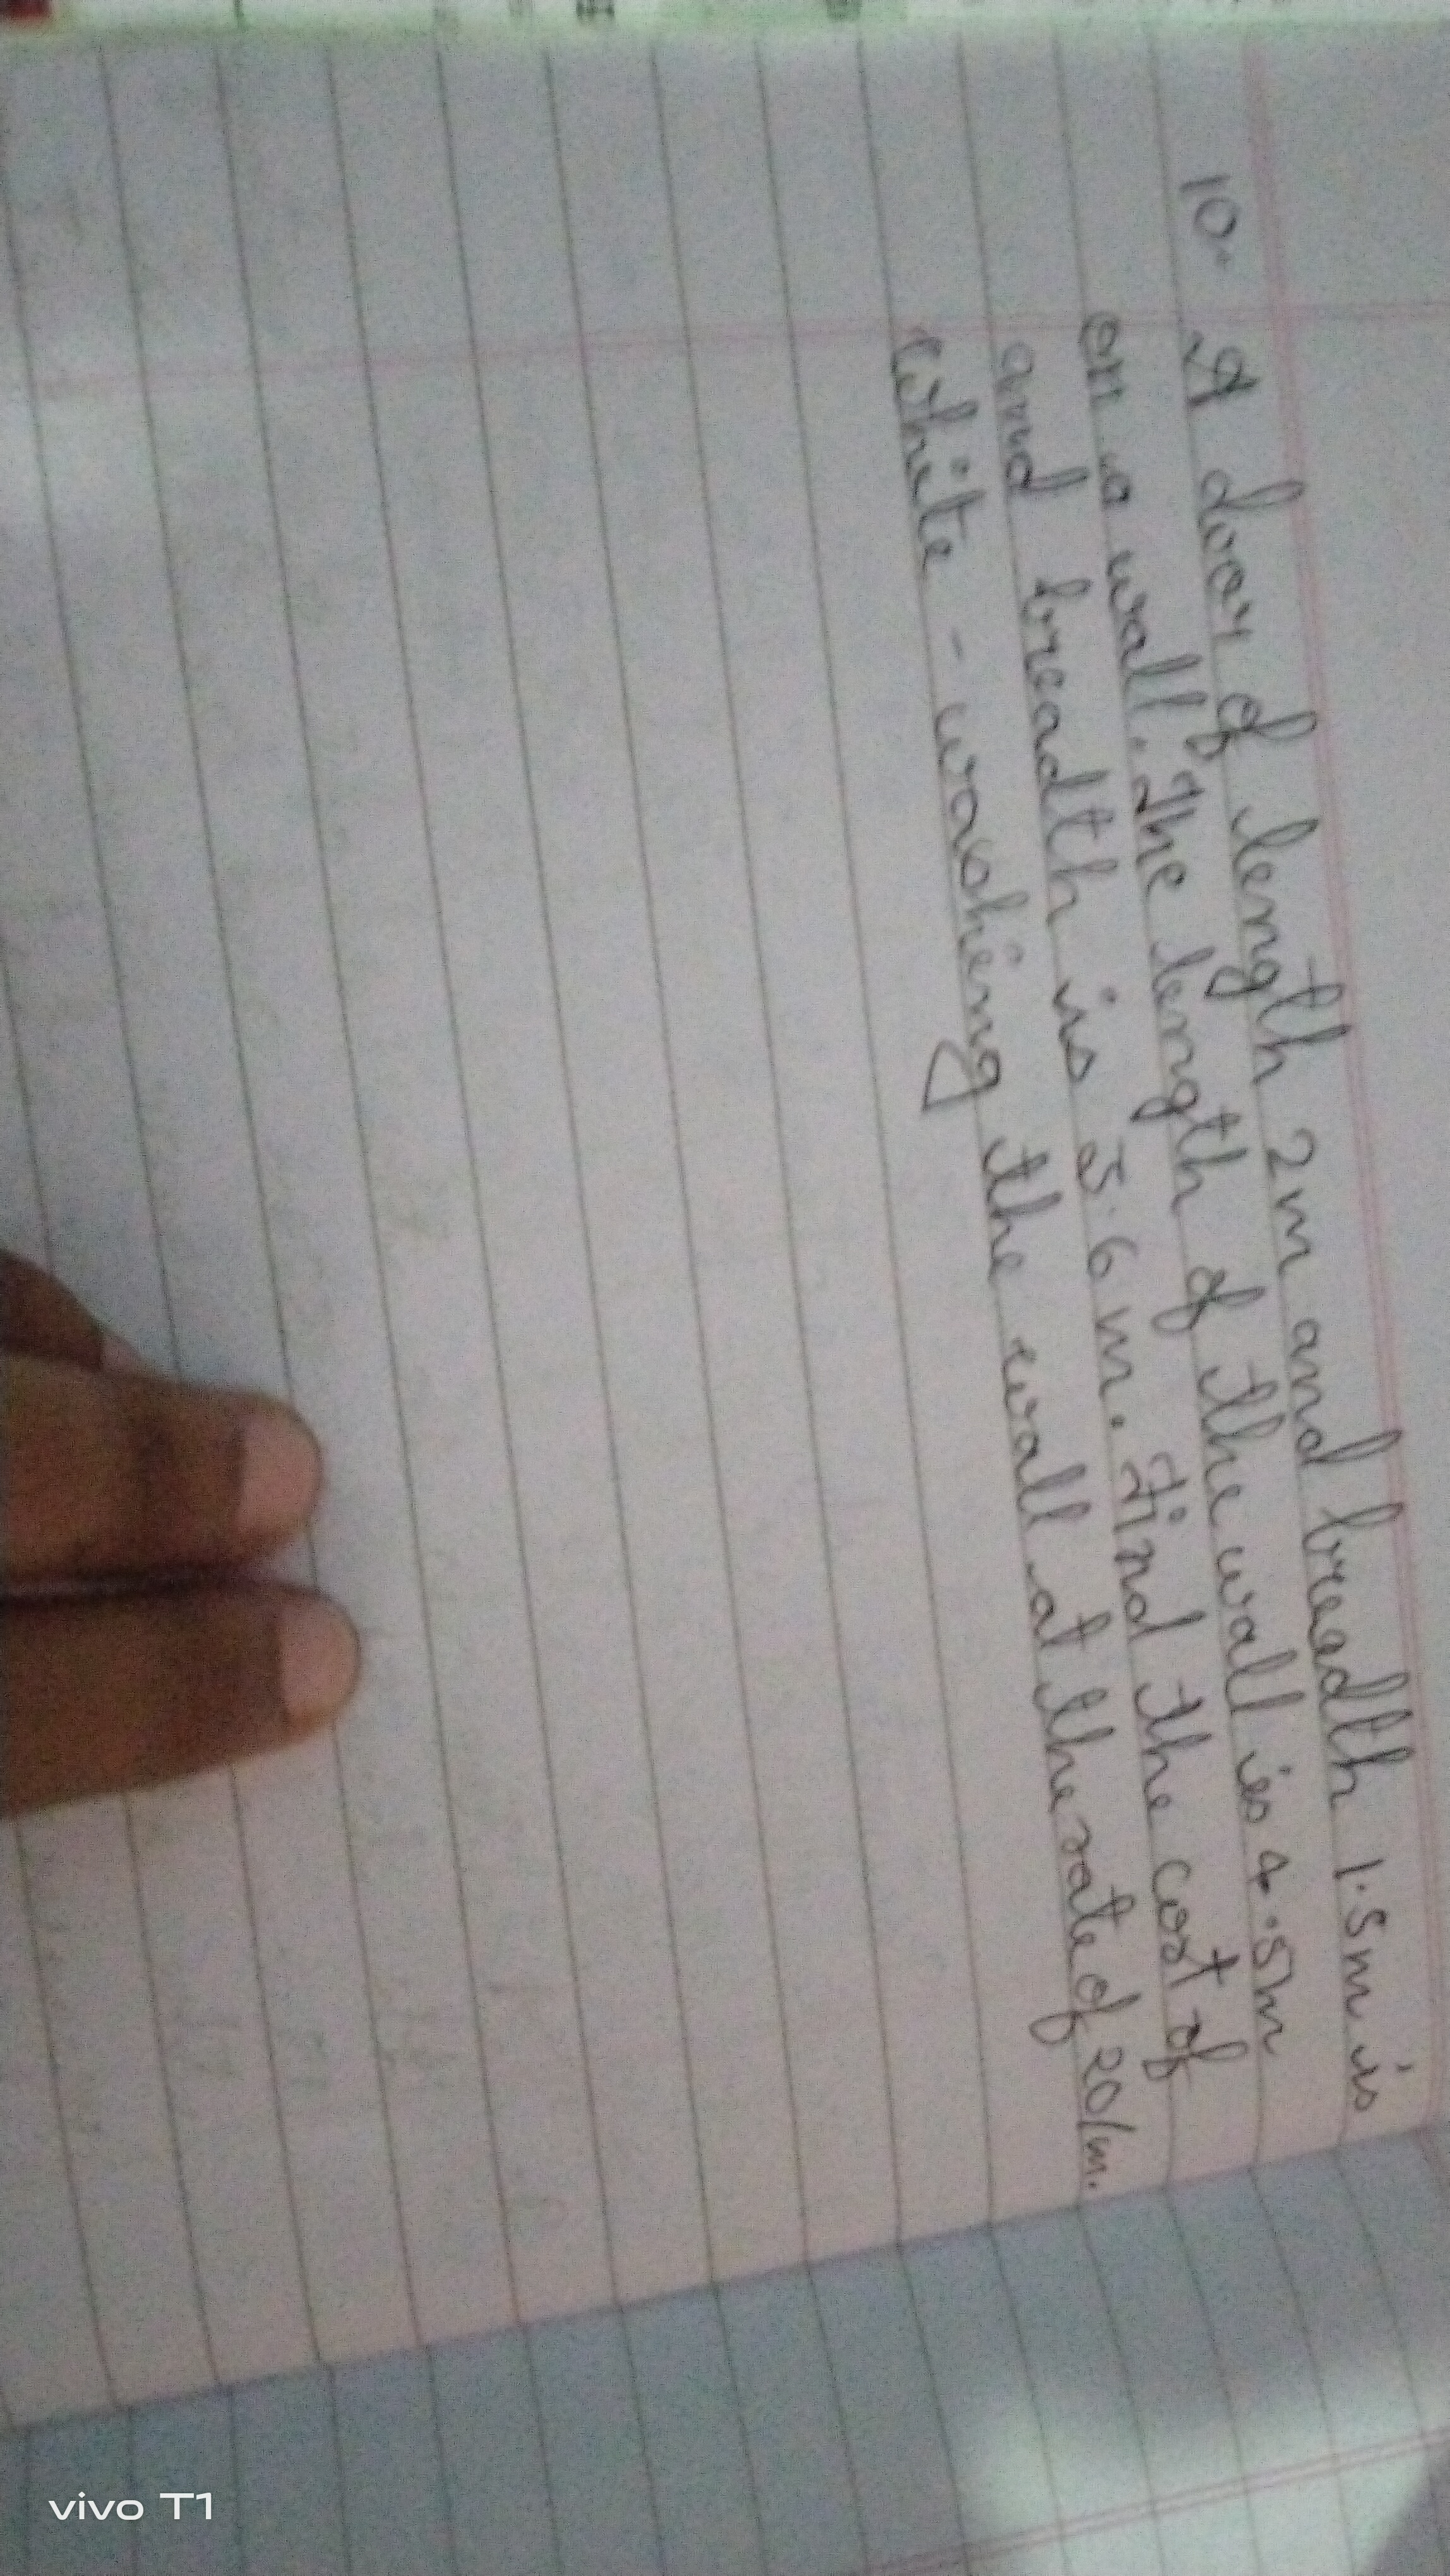 10. A door of length 2m and breadth 1.5m is
on a wall. The length of the wall is 4.5m
and breadth is 3.6 m. Find the cost of
white - washing the wall at the rate of 20/m.
vivo T1